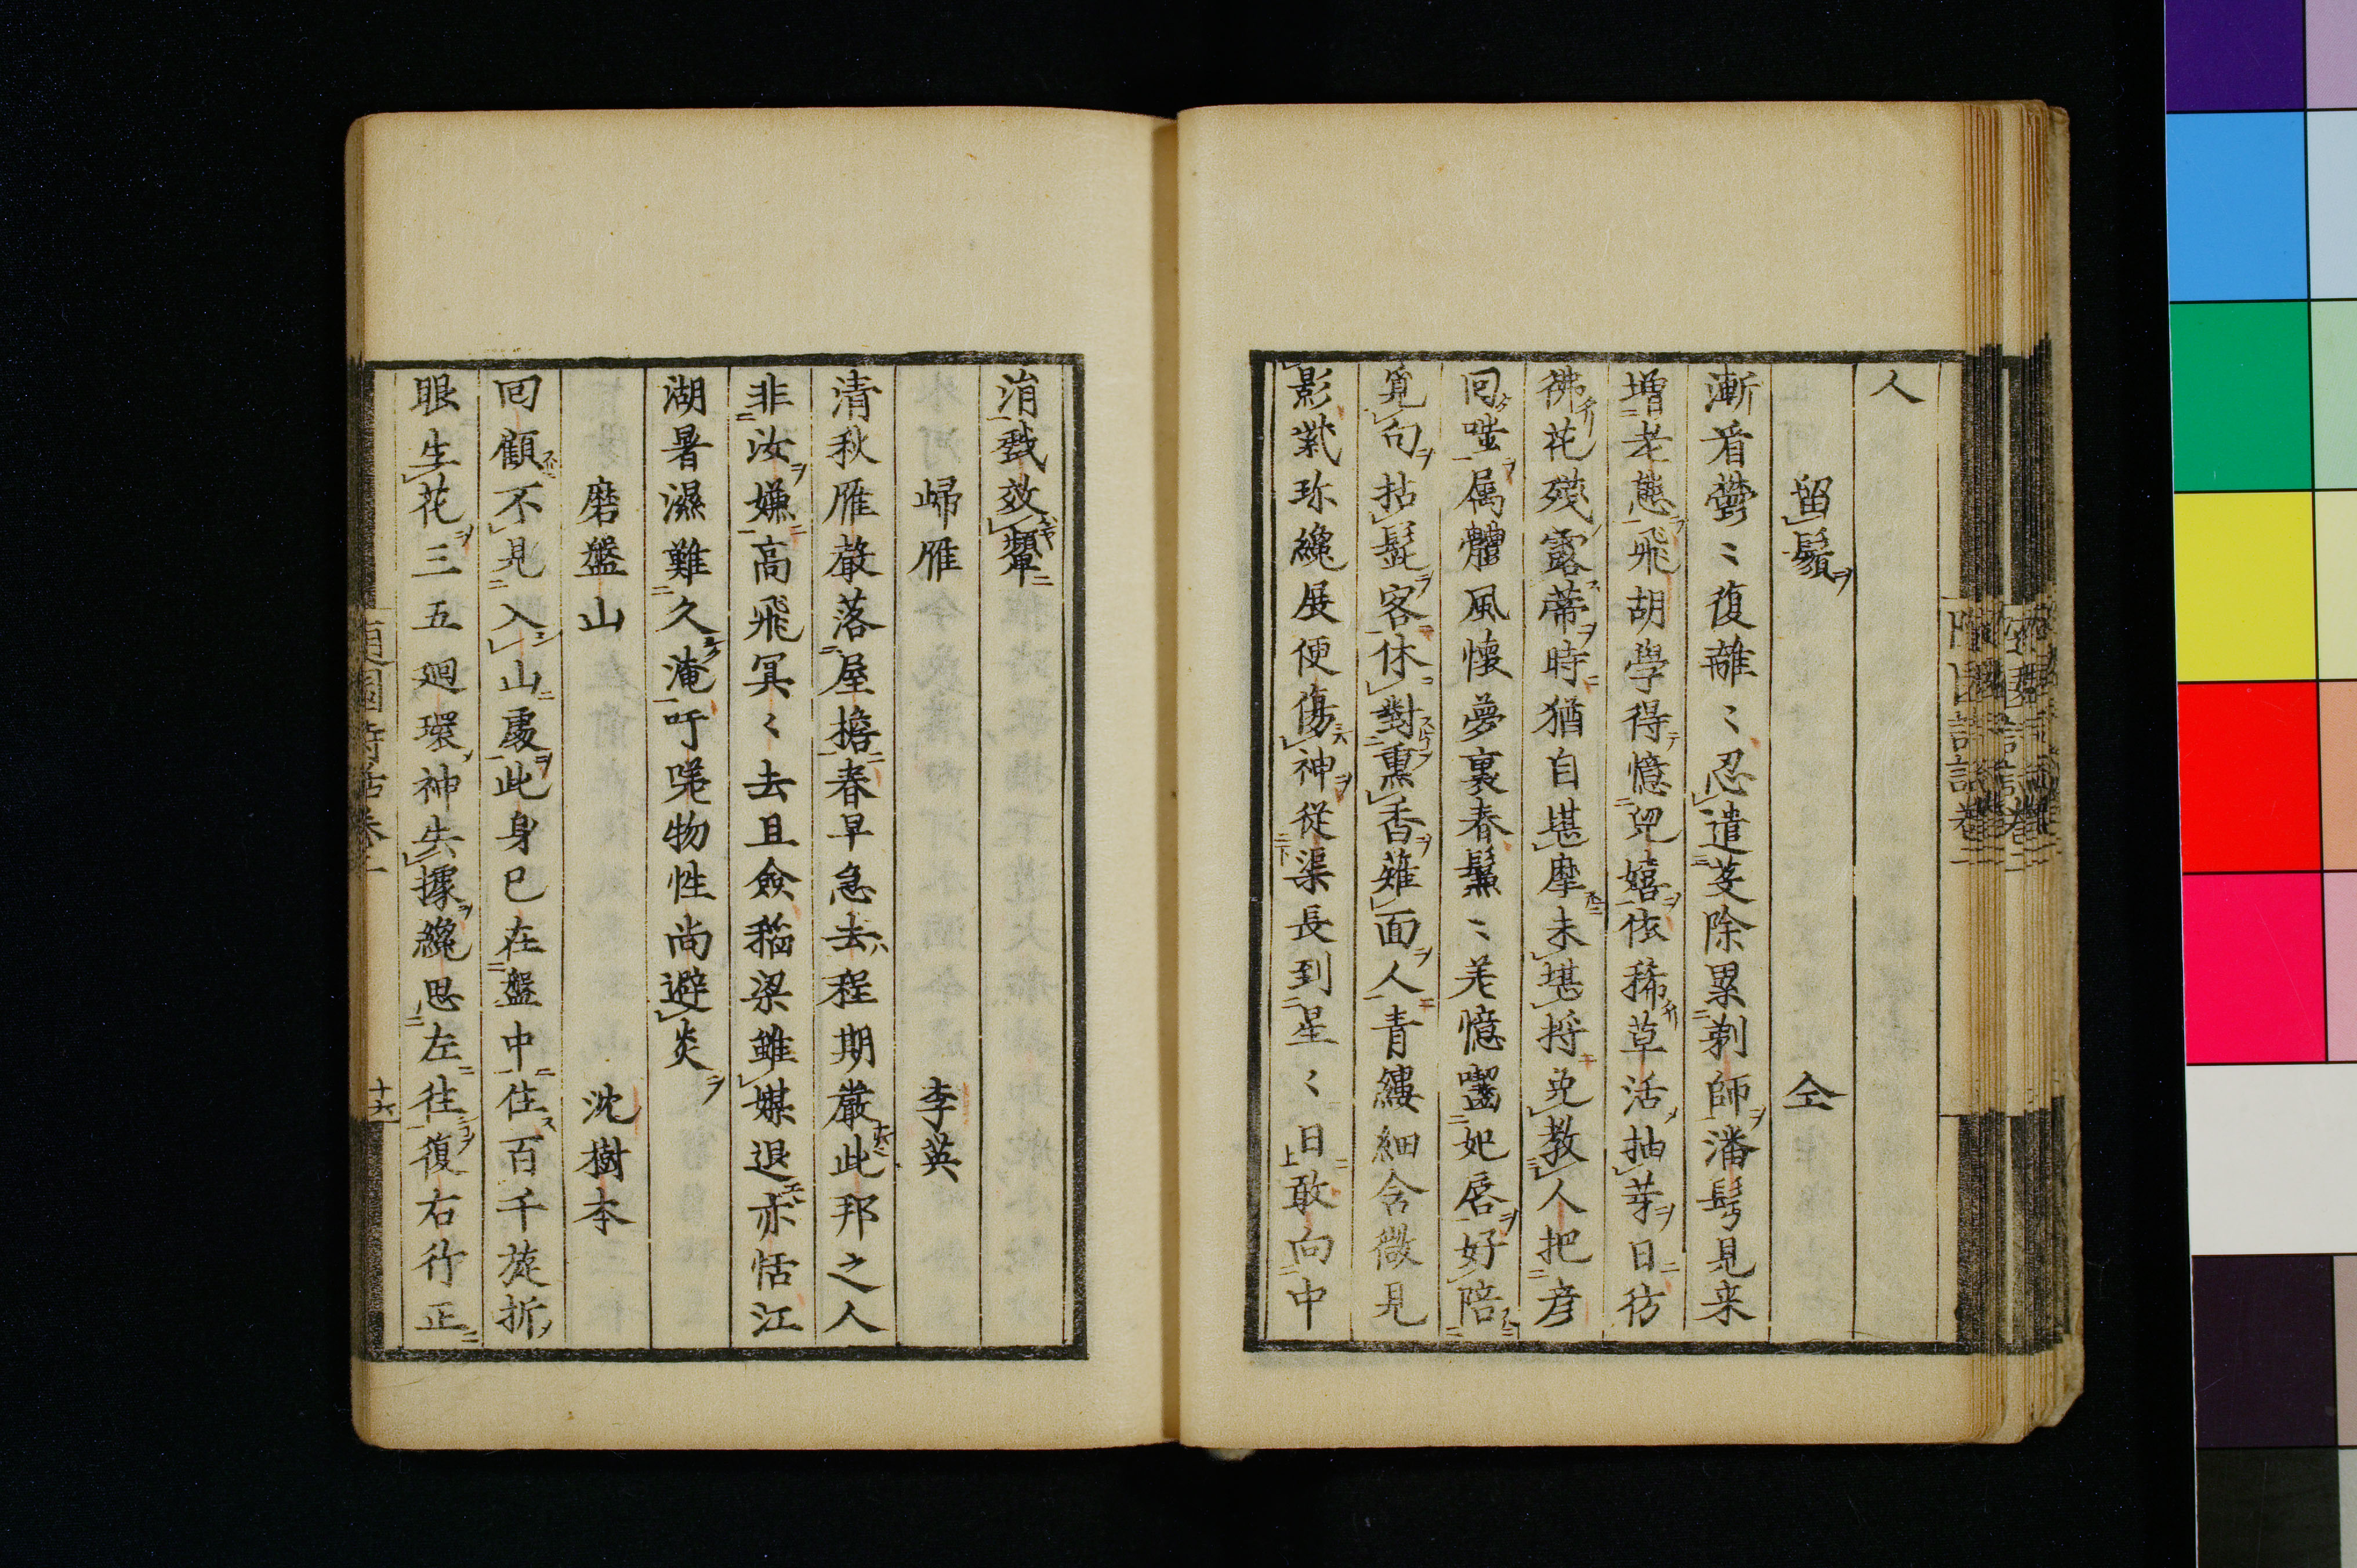 人
留鬚　仝
漸看鬱〻復離〻忍遣芟除累剃師潘髩見来
増老態飛胡學得憶兒嬉依稀草活抽芽日彷
彿花殘露蒂時猶自堪摩未堪捋免教人把彦
回嗤属體風懷夢裏春鬚〻羌憶囓妃唇好陪
覓句拈髭客休對熏香薙面人青縷細含微見
影紫珎纔展便傷神從渠長到星〻日敢向中
涓戯效顰
歸雁　李英
清秋雁聲落屋擔春早急去程期嚴此邦之人
非汝嫌高飛冥〻去且僉稲梁雖媒退亦恬江
湖暑濕難久淹吁嗟物性尚避炎
磨盤山　沈樹本
回顧不見入山處此身已在盤中住百千旋折
眼生花三五廻環神失據纔思左往復右行正
十六